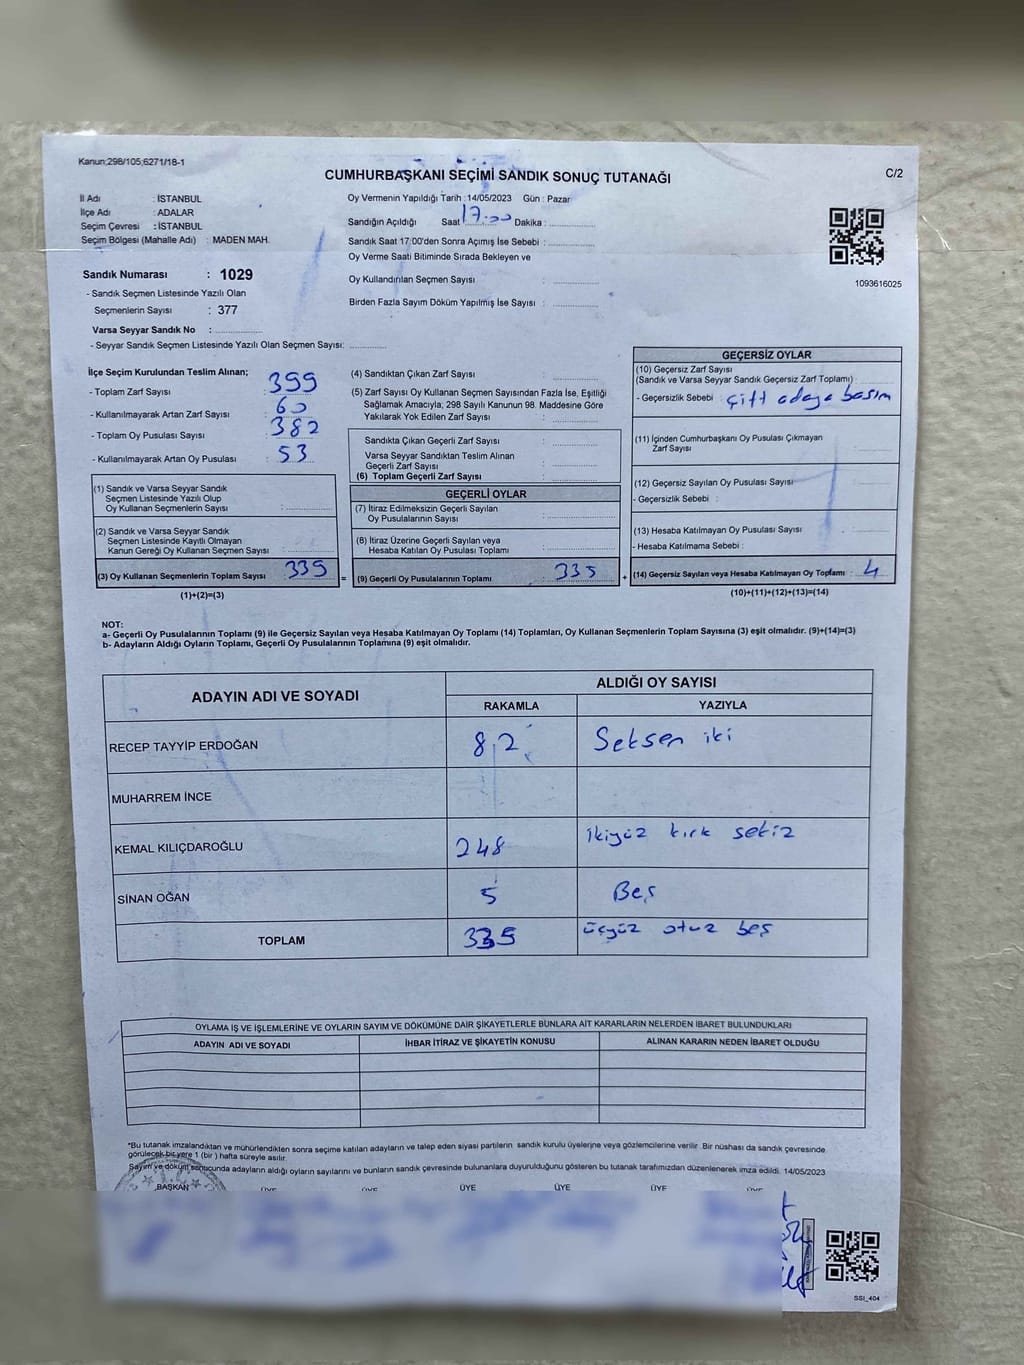 Kanun;298/105;6271/18-1
CUMHURBAŞKANI SEÇİMİ SANDIK SONUÇ TUTANAĞI
C/2
İl Adı : İSTANBUL
İlçe Adı : ADALAR
Seçim Çevresi : İSTANBUL
Seçim Bölgesi (Mahalle Adı) : MADEN MAH.
Oy Vermenin Yapıldığı Tarih : 14/05/2023 Gün : Pazar
Sandığın Açıldığı Saat 17.00 Dakika :
Sandık Saat 17:00'den Sonra Açımış İse Sebebi :
Oy Verme Saati Bitiminde Sırada Bekleyen ve
Oy Kullandırılan Seçmen Sayısı :
Birden Fazla Sayım Döküm Yapılmış İse Sayısı :
1093616025
Sandık Numarası : 1029
- Sandık Seçmen Listesinde Yazılı Olan
Seçmenlerin Sayısı : 377
Varsa Seyyar Sandık No :
- Seyyar Sandık Seçmen Listesinde Yazılı Olan Seçmen Sayısı:
İlçe Seçim Kurulundan Teslim Alınan;
- Toplam Zarf Sayısı : 399
- Kullanılmayarak Artan Zarf Sayısı : 60
- Toplam Oy Pusulası Sayısı : 382
- Kullanılmayarak Artan Oy Pusulası : 53
(1) Sandık ve Varsa Seyyar Sandık
Seçmen Listesinde Yazılı Olup
Oy Kullanan Seçmenlerin Sayısı :
(2) Sandık ve Varsa Seyyar Sandık
Seçmen Listesinde Kayıtlı Olmayan
Kanun Gereği Oy Kullanan Seçmen Sayısı :
(3) Oy Kullanan Seçmenlerin Toplam Sayısı : 339
(1)+(2)=(3)
(4) Sandıktan Çıkan Zarf Sayısı :
(5) Zarf Sayısı Oy Kullanan Seçmen Sayısından Fazla İse, Eşitliği
Sağlamak Amacıyla; 298 Sayılı Kanunun 98. Maddesine Göre
Yakılarak Yok Edilen Zarf Sayısı :
Sandıkta Çıkan Geçerli Zarf Sayısı :
Varsa Seyyar Sandıktan Teslim Alınan
Geçerli Zarf Sayısı :
(6) Toplam Geçerli Zarf Sayısı :
GEÇERLİ OYLAR
(7) İtiraz Edilmeksizin Geçerli Sayılan
Oy Pusulalarının Sayısı :
(8) İtiraz Üzerine Geçerli Sayılan veya
Hesaba Katılan Oy Pusulası Toplamı :
= (9) Geçerli Oy Pusulalarının Toplamı : 335 +
GEÇERSİZ OYLAR
(10) Geçersiz Zarf Sayısı
(Sandık ve Varsa Seyyar Sandık Geçersiz Zarf Toplamı) :
- Geçersizlik Sebebi : Çift adaya basım
(11) İçinden Cumhurbaşkanı Oy Pusulası Çıkmayan
Zarf Sayısı :
(12) Geçersiz Sayılan Oy Pusulası Sayısı :
- Geçersizlik Sebebi :
(13) Hesaba Katılmayan Oy Pusulası Sayısı :
- Hesaba Katılmama Sebebi :
(14) Geçersiz Sayılan veya Hesaba Katılmayan Oy Toplamı : 4
(10)+(11)+(12)+(13)=(14)
NOT:
a- Geçerli Oy Pusulalarının Toplamı (9) ile Geçersiz Sayılan veya Hesaba Katılmayan Oy Toplamı (14) Toplamları, Oy Kullanan Seçmenlerin Toplam Sayısına (3) eşit olmalıdır. (9)+(14)=(3)
b- Adayların Aldığı Oyların Toplamı, Geçerli Oy Pusulalarının Toplamına (9) eşit olmalıdır.
ADAYIN ADI VE SOYADI
ALDIĞI OY SAYISI
RAKAMLA YAZIYLA
RECEP TAYYİP ERDOĞAN 82 Seksen iki
MUHARREM İNCE
KEMAL KILIÇDAROĞLU 248 İkiyüz kırk sekiz
SİNAN OĞAN 5 Beş
TOPLAM 335 üçyüz otuz beş
OYLAMA İŞ VE İŞLEMLERİNE VE OYLARIN SAYIM VE DÖKÜMÜNE DAİR ŞİKAYETLERLE BUNLARA AİT KARARLARIN NELERDEN İBARET BULUNDUKLARI
ADAYIN ADI VE SOYADI İHBAR İTİRAZ VE ŞİKAYETİN KONUSU ALINAN KARARIN NEDEN İBARET OLDUĞU
*Bu tutanak imzalandıktan ve mühürlendikten sonra seçime katılan adayların ve talep eden siyasi partilerin sandık kurulu üyelerine veya gözlemcilerine verilir. Bir nüshası da sandık çevresinde
görülecek bir yere 1 (bir) hafta süreyle asılır.
Sayım ve döküm sonucunda adayların aldığı oyların sayılarını ve bunların sandık çevresinde bulunanlara duyurulduğunu gösteren bu tutanak tarafımızdan düzenlenerek imza edildi. 14/05/2023
BAŞKAN ÜYE ÜYE ÜYE ÜYE ÜYE ÜYE
SSI_404